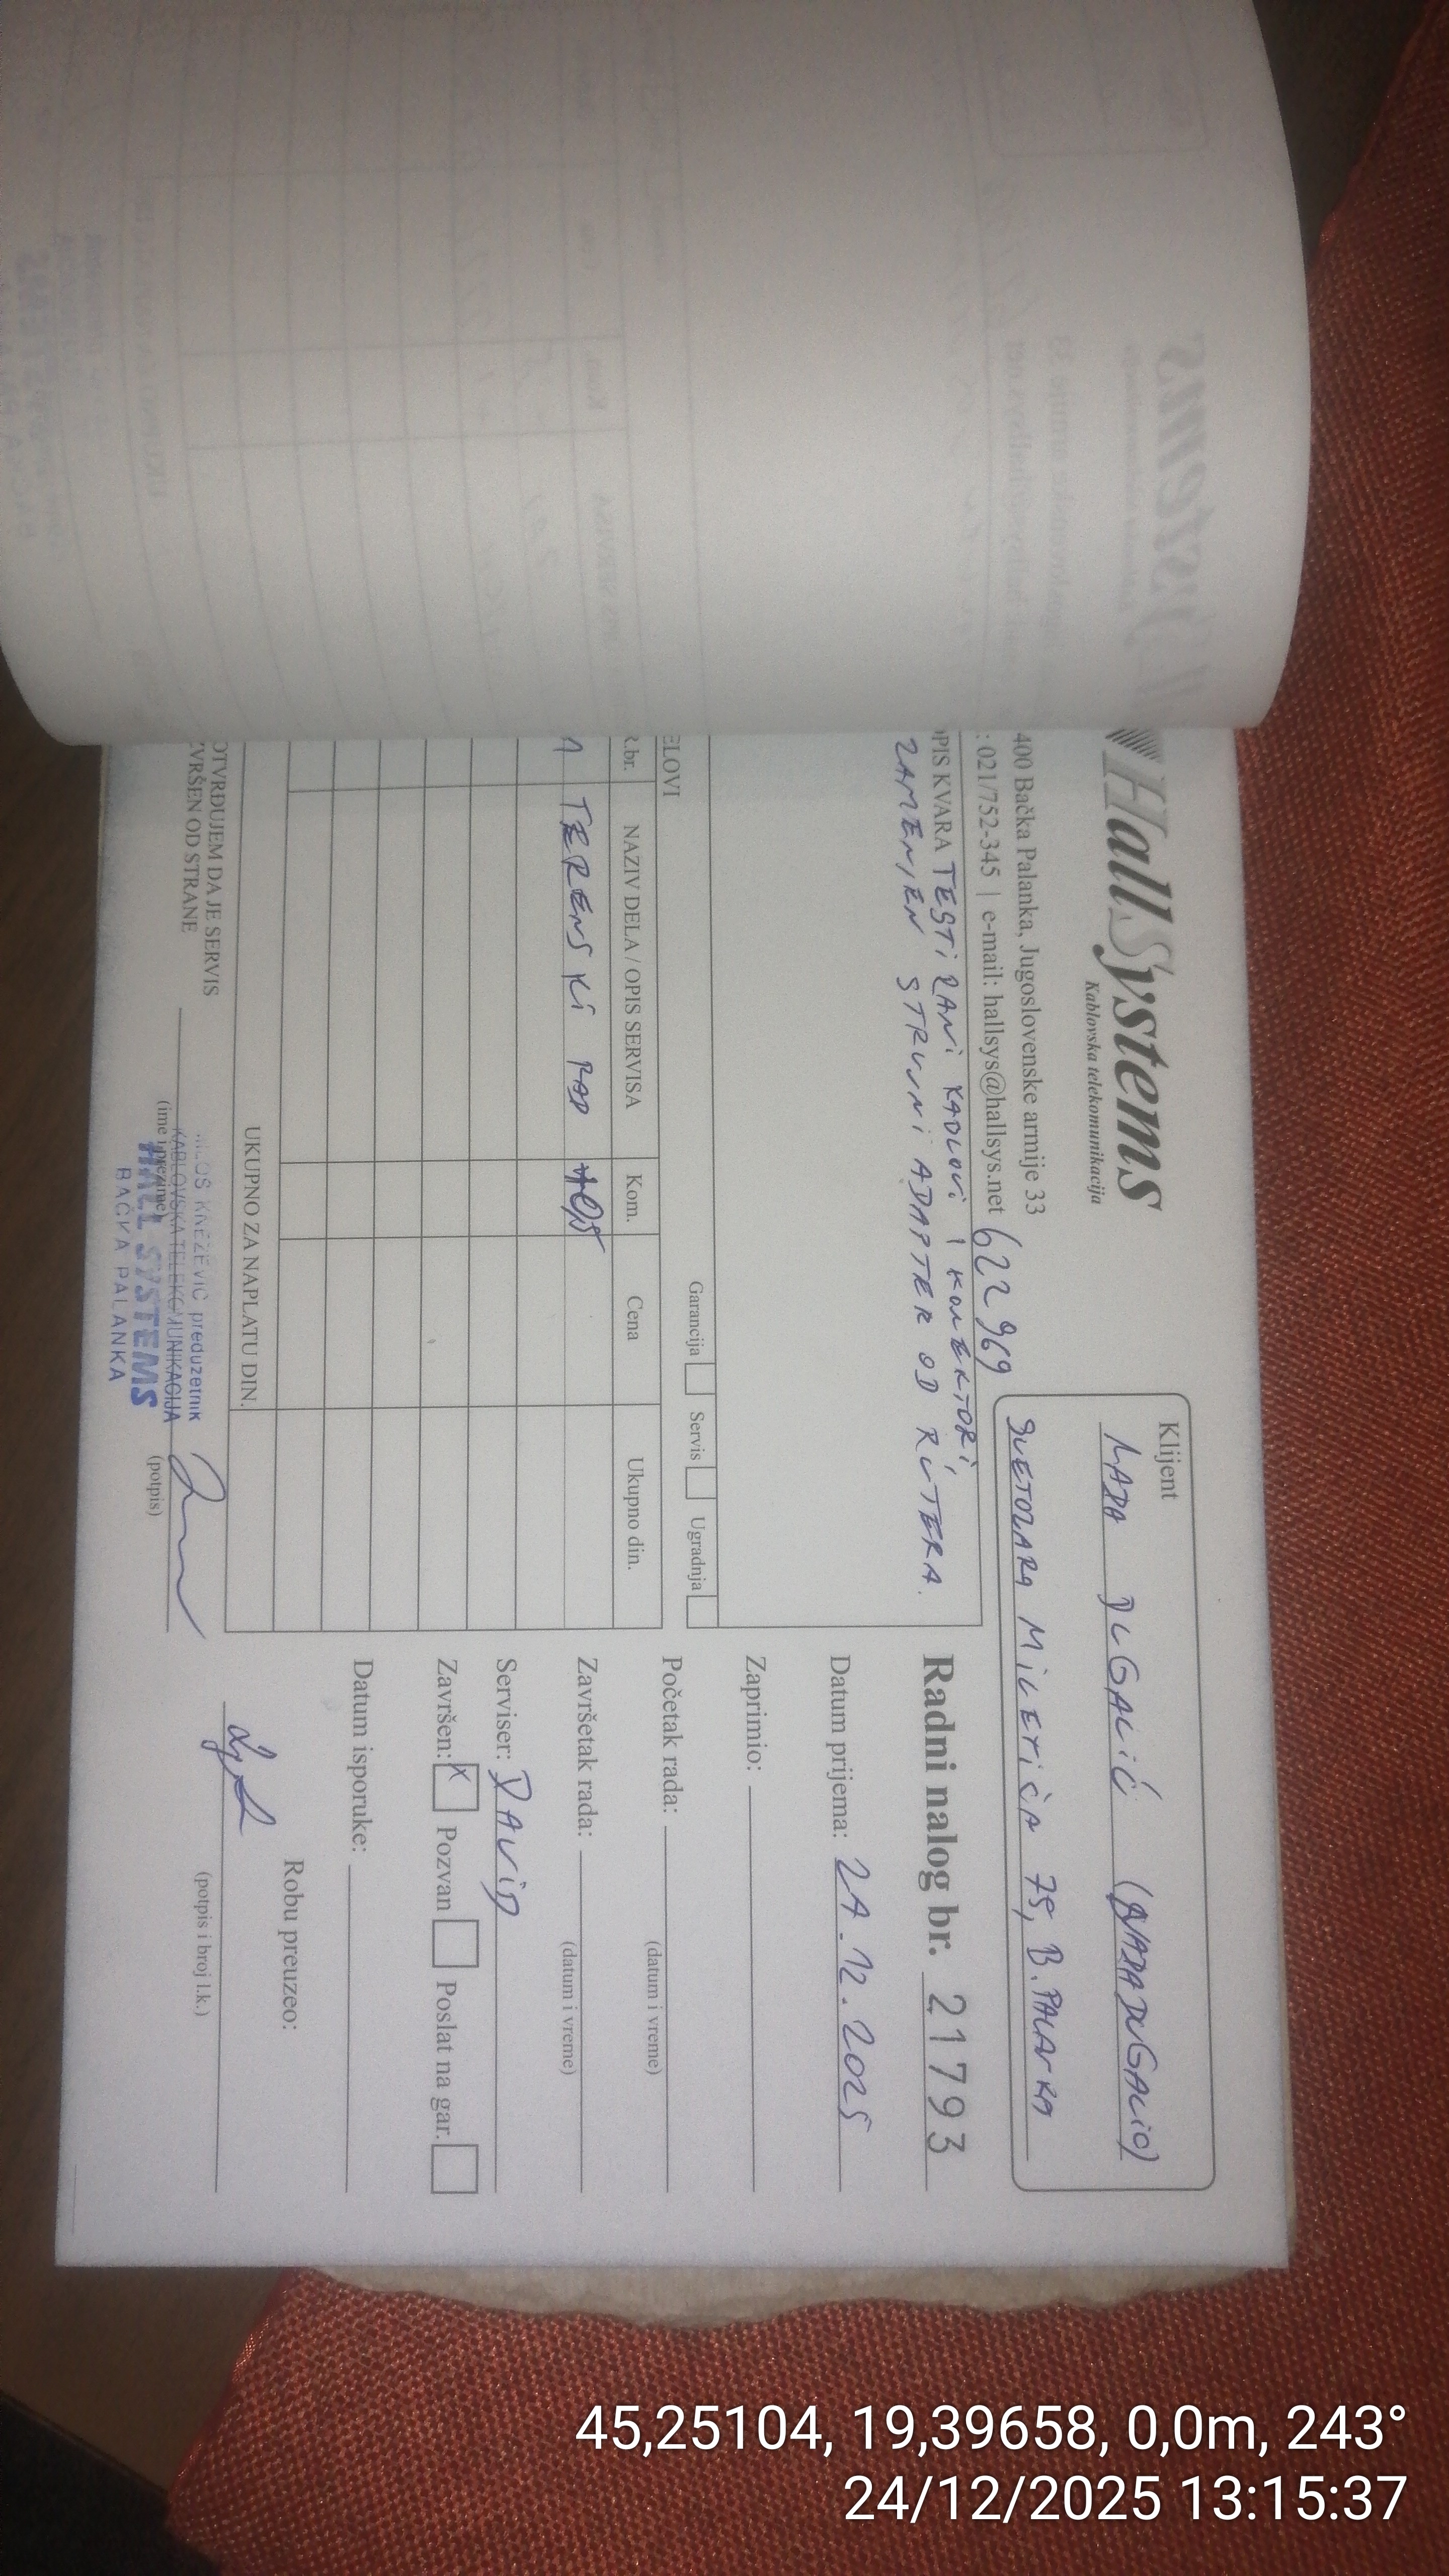 HallSystems
Kablovska telekomunikacija
400 Bačka Palanka, Jugoslovenske armije 33
: 021/752-345 | e-mail: hallsys@hallsys.net 622 969
Klijent
DUGALIĆ
SVETOZARA MILETIĆA 75, B. PALANKA
OPIS KVARA TESTIRANI KABLOVI I KONEKTORI,
ZAMENJEN STRUJNI ADAPTER OD RUTERA.
Garancija Servis Ugradnja
ELOVI
R.br. NAZIV DELA / OPIS SERVISA Kom. Cena Ukupno din.
1 TERENSKI RAD
UKUPNO ZA NAPLATU DIN.
OTVRĐUJEM DA JE SERVIS
ZVRŠEN OD STRANE
(ime i prezime) (potpis)
KNEŽEVIĆ preduzetnik
KABLOVSKA TELEKOMUNIKACIJA
HALL SYSTEMS
BAČKA PALANKA
Radni nalog br. 21793
Datum prijema: 24.12.2025
Zaprimio:
Početak rada:
(datum i vreme)
Završetak rada:
(datum i vreme)
Serviser: DAVID
Završen: X Pozvan Poslat na gar.
Datum isporuke:
Robu preuzeo:
(potpis i broj l.k.)
45,25104, 19,39658, 0,0m, 243°
24/12/2025 13:15:37